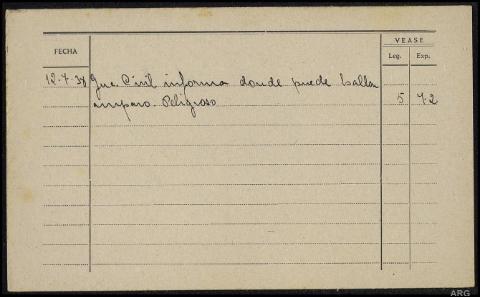 FECHA
VEASE
Leg. Exp.
12-7-38 Gue. Civil informa donde puede halla
amparo. Peligroso 5 72
ARG